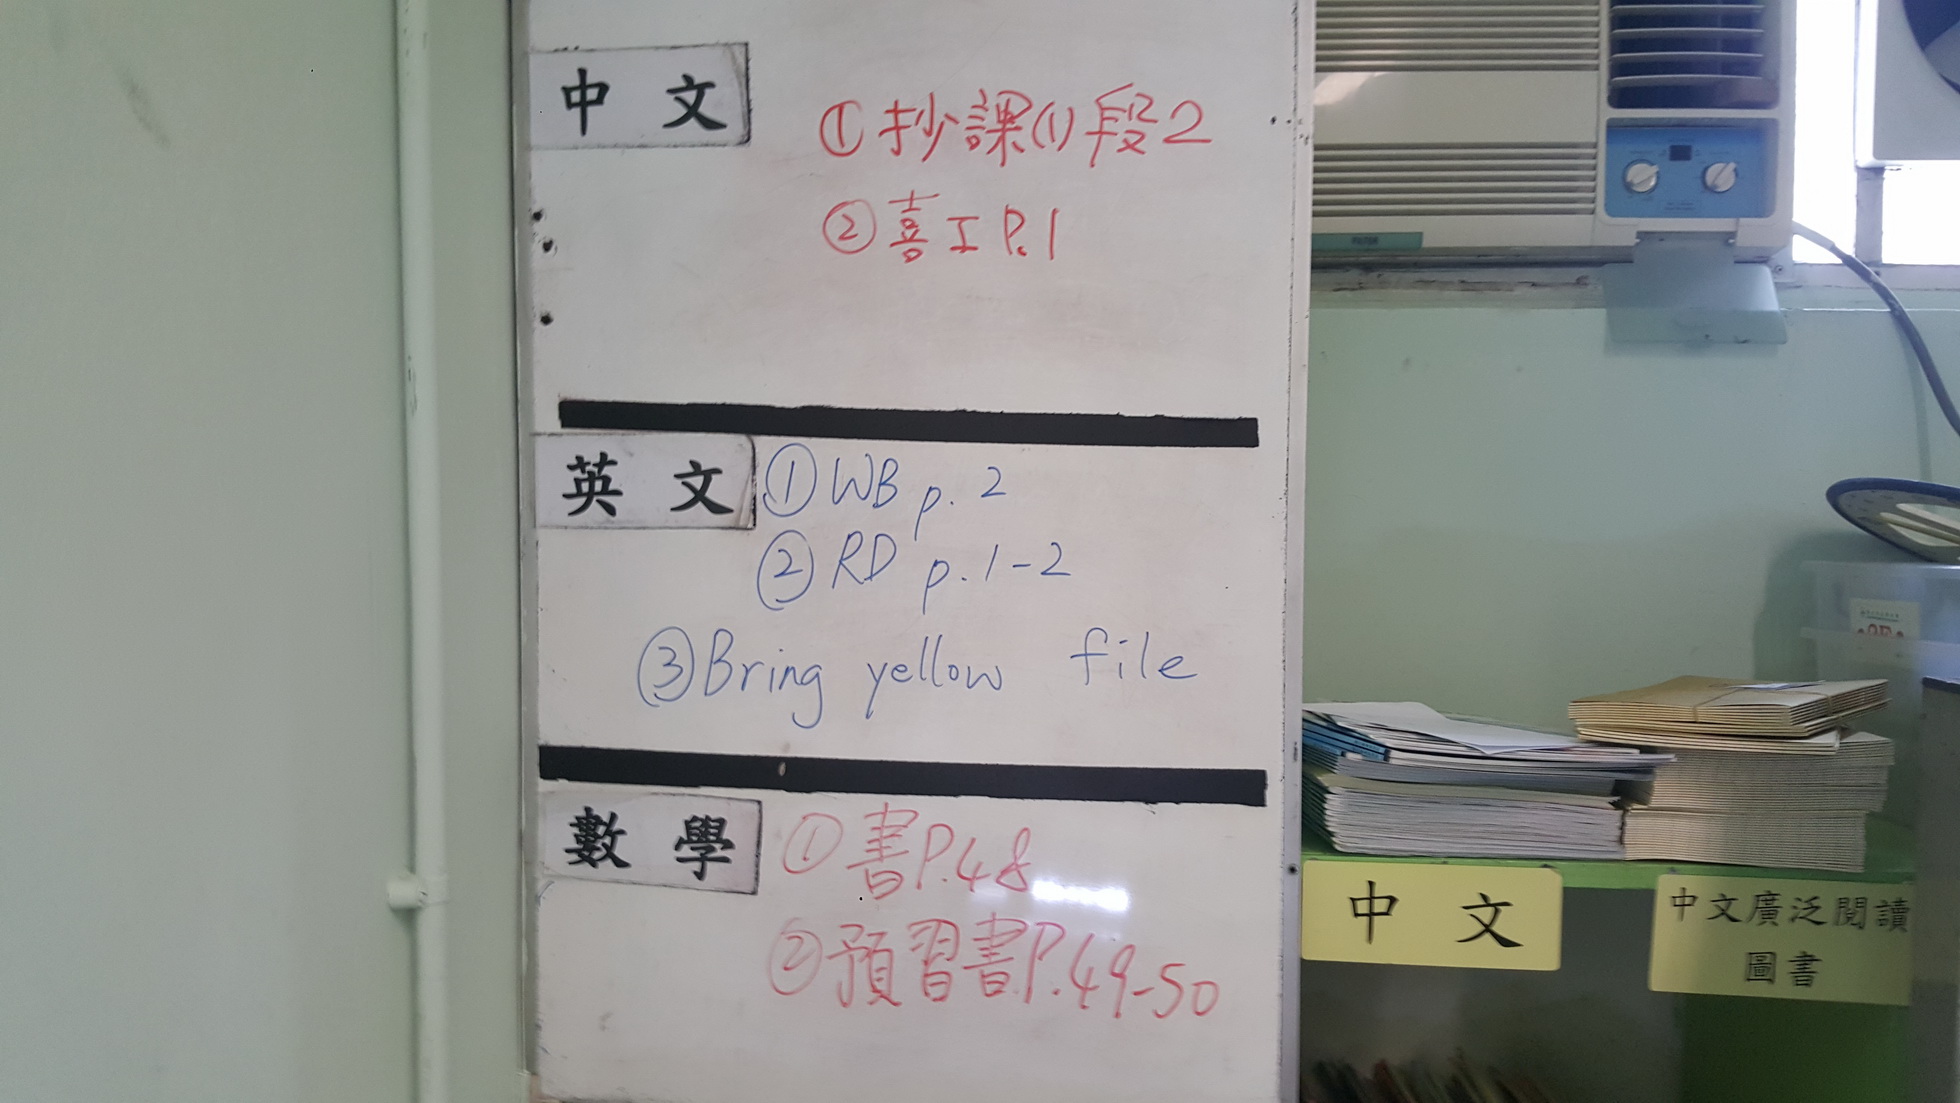 中 文
①抄課(1)段2
②喜工P.1
英 文
①WB p.2
②RD p.1-2
③Bring yellow file
數 學
①書P.48
②預習書P.49-50
中 文
中文廣泛閱讀
圖書